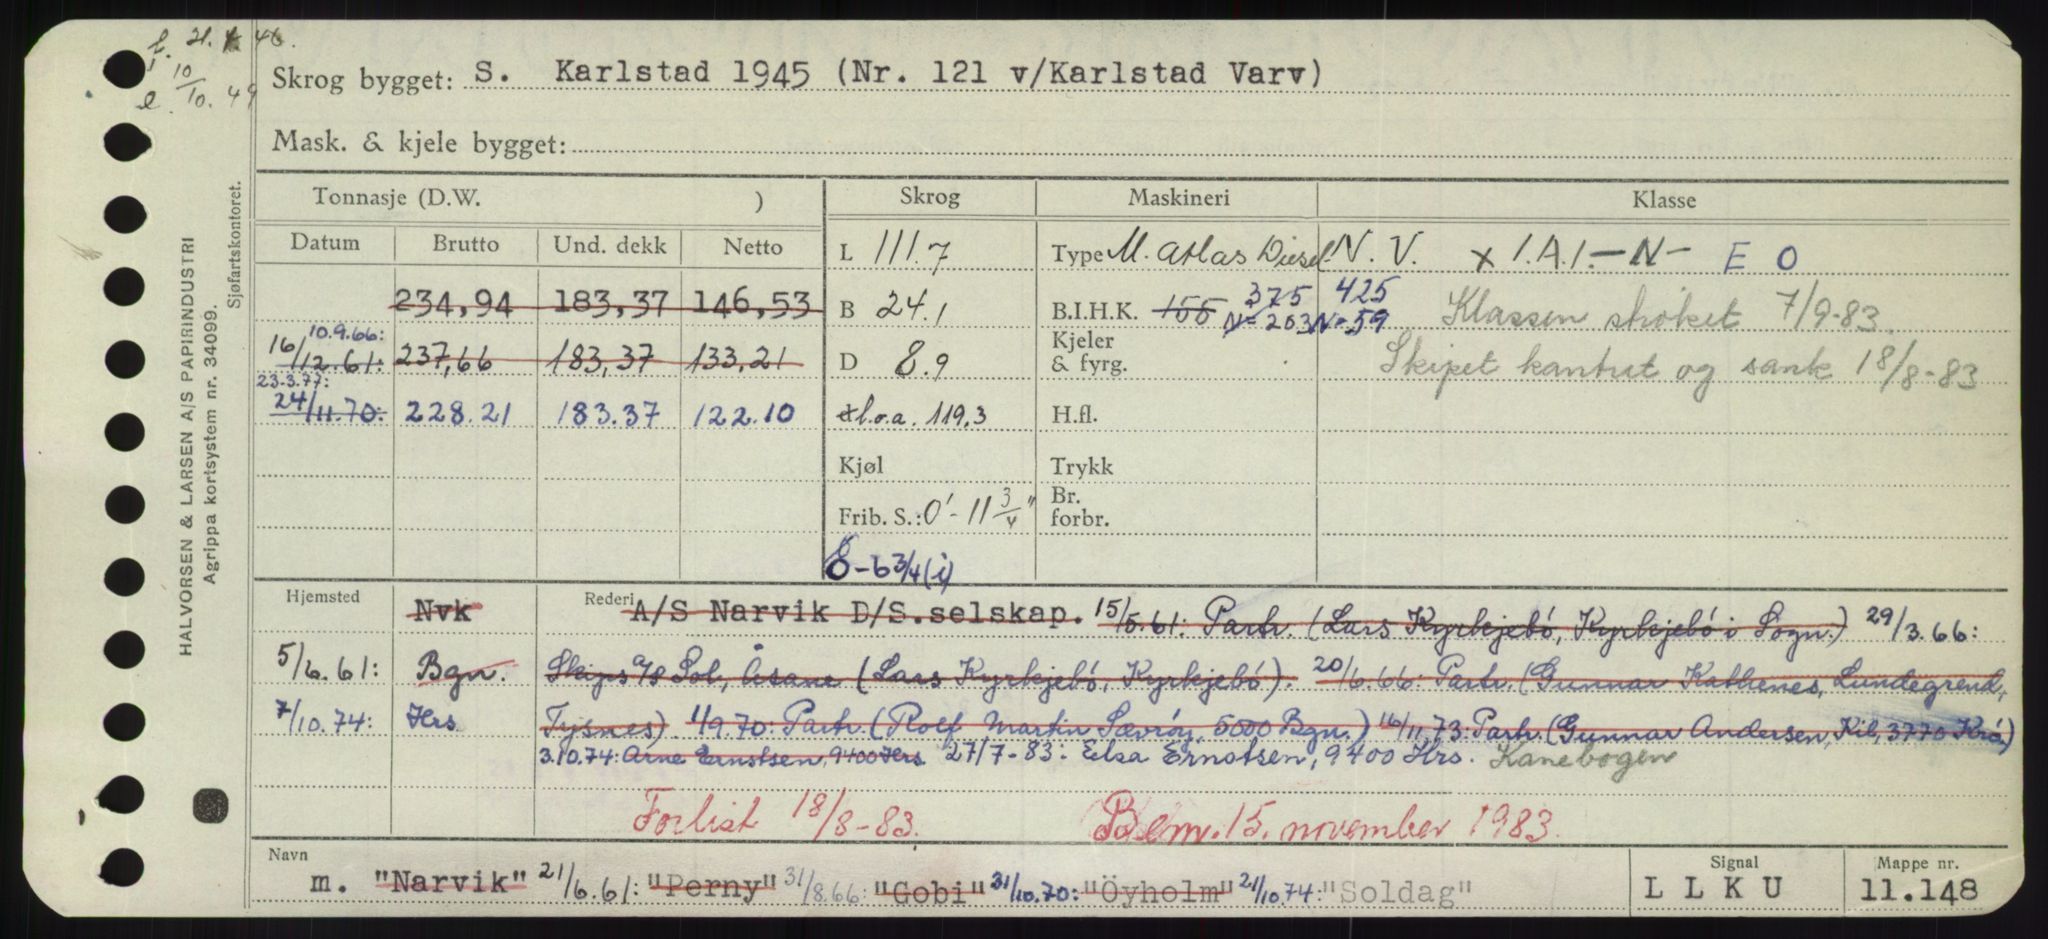 f. 21. 4 46.
i 10/10. 49
e
Skrog bygget: S. Karlstad 1945 (Nr. 121 v/Karlstad Varv)
Mask. & kjele bygget:
HALVORSEN & LARSEN A/S PAPIRINDUSTRI
Agrippa kortsystem nr. 34099.
Sjøfartskontoret.
Tonnasje (D.W. ) Skrog Maskineri Klasse
Datum Brutto Und. dekk Netto L 111.7 Type M. Atlas Diesel N. V. x 1.A.1.-N- E O
234,94 183,37 146,53 B 24.1 B.I.H.K. 155 375 N=263 425 N=59 Klassen strøket 7/9-83.
10.9.66:
16/12.61: 237,66 183,37 133,21 D 8.9 Kjeler & fyrg. Skipet kantret og sank 18/8-83
23.3.77:
24/11.70: 228.21 183.37 122.10 d l.o.a. 119.3 H.fl.
Kjøl Trykk
Frib. S.: 0'-11 3/4" Br. forbr.
6-6 3/4 (i)
Hjemsted Nvk Rederi A/S Narvik D/S.selskap. 15/5.61: Partr. (Lars Kyrkjebö, Kyrkjebö i Sogn.) 29/3.66:
5/6.61: Bgn. Skips a/s Sol, Åsane (Lars Kyrkjebö, Kyrkjebö). 20/6.66: Partr. (Gunnar Kathenes, Lundegrend,
7/10.74: Hrs Tysnes) 1/9.70: Partr. (Rolf Martin Sævröy, 5000 Bgn.) 16/11.73: Partr. (Gunnar Andersen, Kil, 3770 Krö)
3.10.74: Arne Ernstsen, 9400 Hrs. 27/7-83: Elsa Ernstsen, 9400 Hrs. Kanebogen
Forlist 18/8-83. Bem. 15. november 1983.
Navn Signal Mappe nr.
m. "Narvik" 21/6.61: "Perny" 31/8.66: "Gobi" 31/10.70: "Öyholm" 21/10.74: "Soldag" L L K U 11.148